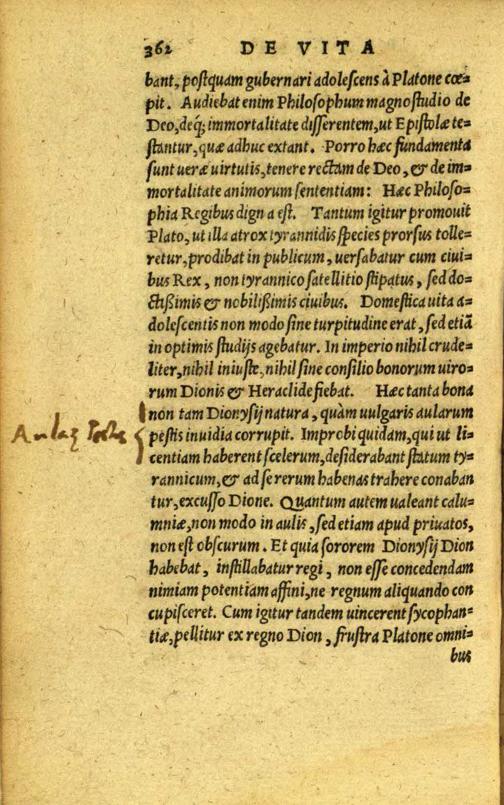 362 DE VITA
bant, postquam gubernari adolescens à Platone cœ=
pit. Audiebat enim Philosophum magno studio de
Deo, deq; immortalitate disserentem, ut Epistolæ te=
stantur, quæ adhuc extant. Porro hæc fundamenta
sunt ueræ uirtutis, tenere rectam de Deo, & de im=
mortalitate animorum sententiam: Hæc Philoso=
phia Regibus digna est. Tantum igitur promouit
Plato, ut illa atrox tyrannidis species prorsus tolle=
retur, prodibat in publicum, uersabatur cum ciui=
bus Rex, non tyrannico satellitio stipatus, sed do=
ctißimis & nobilißimis ciuibus. Domestica uita a=
dolescentis non modo sine turpitudine erat, sed etiã
in optimis studijs agebatur. In imperio nihil crude=
liter, nihil iniuste, nihil sine consilio bonorum uiro=
rum Dionis & Heraclidę fiebat. Hæc tanta bona
non tam Dionysij natura, quàm uulgaris aularum
pestis inuidia corrupit. Improbi quidam, qui ut li=
centiam haberent scelerum, desiderabant statum ty=
rannicum, & ad se rerum habenas trahere conaban
tur, excusso Dione. Quantum autem ualeant calu=
mniæ, non modo in aulis, sed etiam apud priuatos,
non est obscurum. Et quia sororem Dionysij Dion
habebat, instillabatur regi, non esse concedendam
nimiam potentiam affini, ne regnum aliquando con
cupisceret. Cum igitur tandem uincerent sycophan=
tiæ, pellitur ex regno Dion, frustra Platone omni=
bus